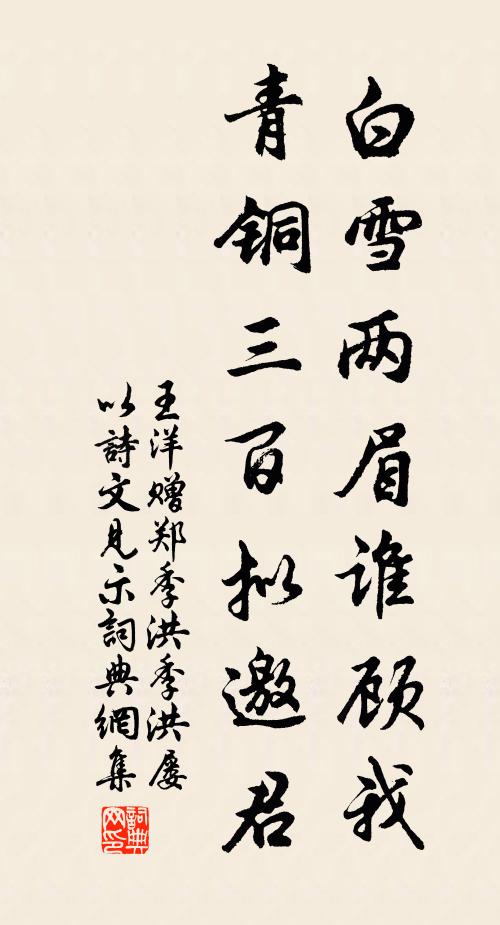 白雪两眉谁顾我
青铜三百拟邀君
王洋赠郑季洪季洪屡
以詩文見示詞典網集
詞典
网印